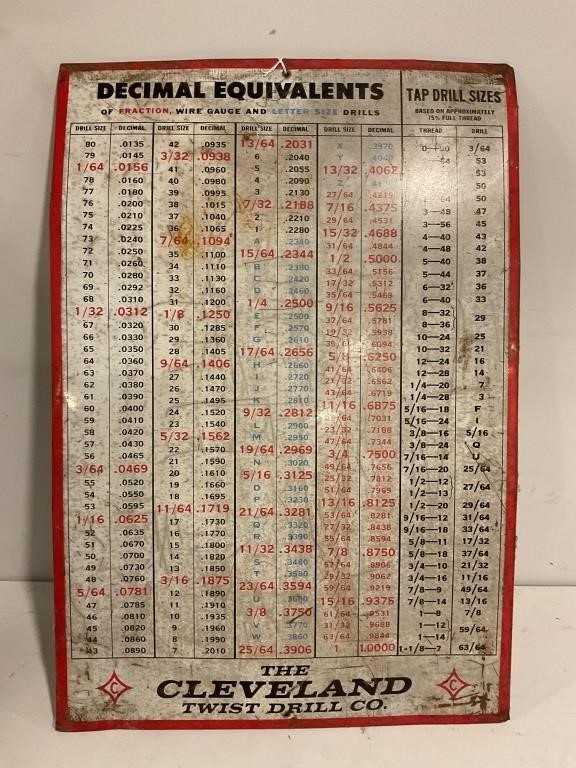 DECIMAL EQUIVALENTS
OF FRACTION, WIRE GAUGE AND LETTER SIZE DRILLS
DRILL SIZE DECIMAL
80 .0135
79 .0145
1/64 .0156
78 .0160
77 .0180
76 .0200
75 .0210
74 .0225
73 .0240
72 .0250
71 .0260
70 .0280
69 .0292
68 .0310
1/32 .0312
67 .0320
66 .0330
65 .0350
64 .0360
63 .0370
62 .0380
61 .0390
60 .0400
59 .0410
58 .0420
57 .0430
56 .0465
3/64 .0469
55 .0520
54 .0550
53 .0595
1/16 .0625
52 .0635
51 .0670
50 .0700
49 .0730
48 .0760
5/64 .0781
47 .0785
46 .0810
45 .0820
44 .0860
43 .0890
DRILL SIZE DECIMAL
42 .0935
3/32 .0938
41 .0960
40 .0980
39 .0995
38 .1015
37 .1040
36 .1065
7/64 .1094
35 .1100
34 .1110
33 .1130
32 .1160
31 .1200
1/8 .1250
30 .1285
29 .1360
28 .1405
9/64 .1406
27 .1440
26 .1470
25 .1495
24 .1520
23 .1540
5/32 .1562
22 .1570
21 .1590
20 .1610
19 .1660
18 .1695
11/64 .1719
17 .1730
16 .1770
15 .1800
14 .1820
13 .1850
3/16 .1875
12 .1890
11 .1910
10 .1935
9 .1960
8 .1990
7 .2010
DRILL SIZE DECIMAL
13/64 .2031
6 .2040
5 .2055
4 .2090
3 .2130
7/32 .2188
2 .2210
1 .2280
A .2340
15/64 .2344
B .2380
C .2420
D .2460
1/4 .2500
E .2500
F .2570
G .2610
17/64 .2656
H .2660
I .2720
J .2770
K .2810
9/32 .2812
L .2900
M .2950
19/64 .2969
N .3020
5/16 .3125
O .3160
P .3230
21/64 .3281
Q .3320
R .3390
11/32 .3438
S .3480
T .3580
23/64 .3594
U .3680
3/8 .3750
V .3770
W .3860
25/64 .3906
DRILL SIZE DECIMAL
X .3970
Y .4040
13/32 .4062
Z .4130
27/64 .4219
7/16 .4375
29/64 .4531
15/32 .4688
31/64 .4844
1/2 .5000
33/64 .5156
17/32 .5312
35/64 .5469
9/16 .5625
37/64 .5781
19/32 .5938
39/64 .6094
5/8 .6250
41/64 .6406
21/32 .6562
43/64 .6719
11/16 .6875
45/64 .7031
23/32 .7188
47/64 .7344
3/4 .7500
49/64 .7656
25/32 .7812
51/64 .7969
13/16 .8125
53/64 .8281
27/32 .8438
55/64 .8594
7/8 .8750
57/64 .8906
29/32 .9062
59/64 .9219
15/16 .9375
61/64 .9531
31/32 .9688
63/64 .9844
1 1.0000
TAP DRILL SIZES
BASED ON APPROXIMATELY
75% FULL THREAD
THREAD DRILL
0—80 3/64
64 53
53
50
64 50
3—48 47
3—56 45
4—40 43
4—48 42
5—40 38
5—44 37
6—32 36
6—40 33
8—32
29
8—36
10—24 25
10—32 21
12—24 16
12—28 14
1/4—20 7
1/4—28 3
5/16—18 F
5/16—24 I
3/8—16 5/16
3/8—24 Q
7/16—14 U
7/16—20 25/64
1/2—12
27/64
1/2—13
1/2—20 29/64
9/16—12 31/64
9/16—18 33/64
5/8—11 17/32
5/8—18 37/64
3/4—10 21/32
3/4—16 11/16
7/8—9 49/64
7/8—14 13/16
1—8 7/8
1—12
59/64
1—14
1-1/8—7 63/64
THE
C CLEVELAND C
TWIST DRILL CO.